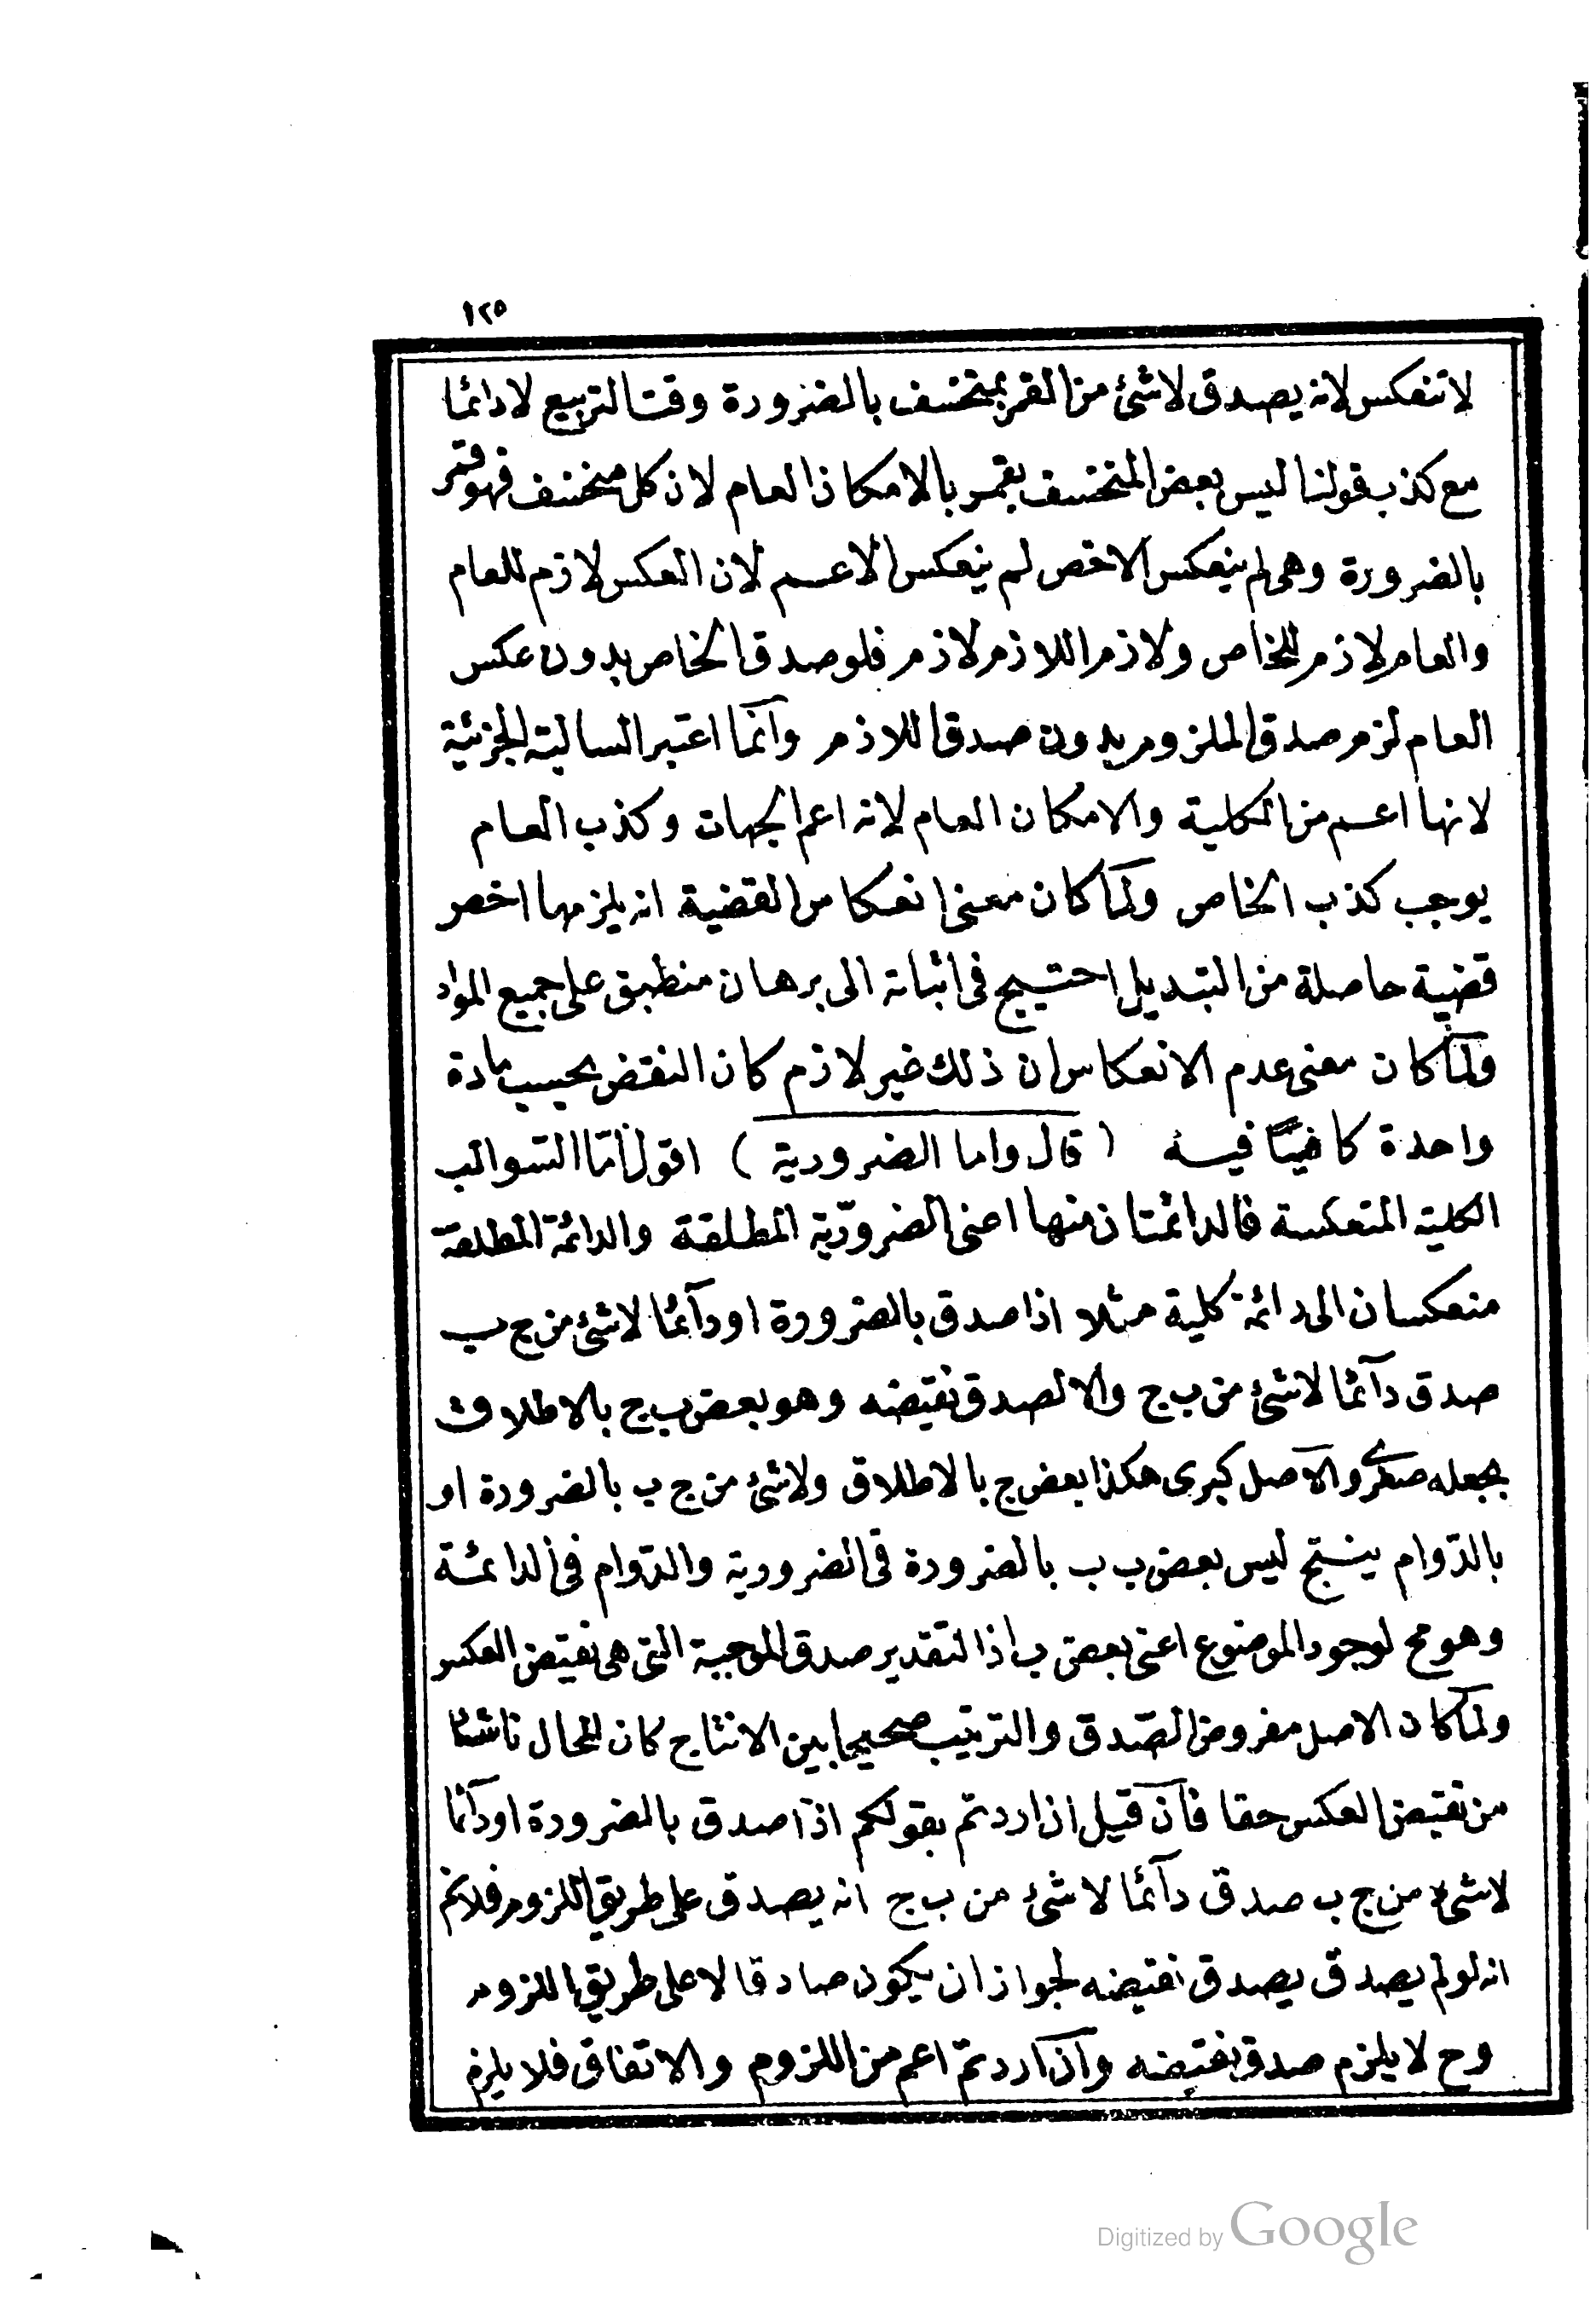 ١٢٥
لا تنعكس لانه يصدق لا شئ من القمر بمنخسف بالضرورة وقت التربيع لا دائما
مع كذب قولنا ليس بعض المنخسف بقمر بالامكان العام لان كل منخسف فهو قمر
بالضرورة وهى لم ينعكس الاخص لم ينعكس الاعم لان العكس لازم للعام
والعام لازم للخاص ولازم اللازم لازم فلو صدق الخاص بدون عكس
العام لزم صدق الملزوم بدون صدق اللازم وانما اعتبر السالبة الجزئية
لانها اعم من الكلية والامكان العام لانه اعم الجهات وكذب العام
يوجب كذب الخاص ولما كان معنى انعكاس القضية انه يلزمها اخص
قضية حاصلة من التبديل احتيج فى اثباته الى برهان منطبق على جميع المواد
ولما كان معنى عدم الانعكاس ان ذلك غير لازم كان النقض بحسب مادة
واحدة كافيا فيه ( قال واما الضرورية ) اقول اما السوالب
الكلية المنعكسة فالدائمتان منها اعنى الضروريّة المطلقة والدائمة المطلقة
منعكسان الى دائمة كلية مثلا اذا صدق بالضرورة او دآئما لا شئ من ج ب
صدق دآئما لا شئ من ب ج والا لصدق نقيضه وهو بعض ب ج بالاطلاق
بجعله صغرى والاصل كبرى هكذا بعض ج بالاطلاق ولا شئ من ج ب بالضرورة او
بالدّوام ينتج ليس بعض ب ب بالضرورة فى الضرورية والدّوام فى الدائمة
وهو مح لوجود الموضوع اعنى بعض ب اذ التقدير صدق الموجبة التى هى نقيض العكس
ولما كان الاصل مفروض الصّدق والترتيب صحيحا بين الانتاج كان المحال ناشئا
من نقيض العكس حقا فان قيل ان اردتم بقولكم اذا صدق بالضرورة او دآئما
لا شئ من ج ب صدق دآئما لا شئ من ب ج انه يصدق على طريق اللزوم فلانم
انه لو لم يصدق يصدق نقيضه لجواز ان يكون صادقا لا على طريق اللزوم
وح لا يلزم صدق نقيضه وان اردتم اعم من اللزوم والاتفاق فلا يلزم
Digitized by Google